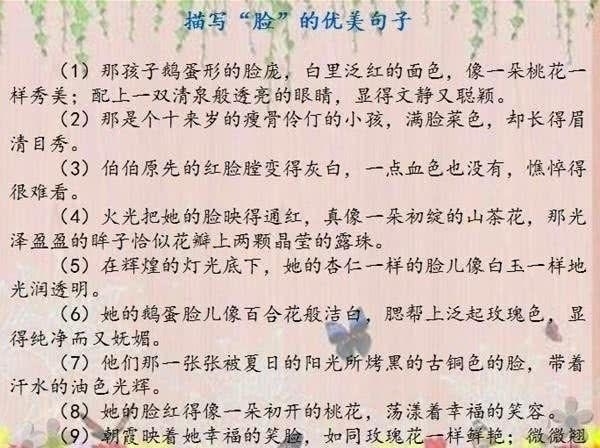 描写“脸”的优美句子
（1）那孩子鹅蛋形的脸庞，白里泛红的面色，像一朵桃花一
样秀美；配上一双清泉般透亮的眼睛，显得文静又聪颖。
（2）那是个十来岁的瘦骨伶仃的小孩，满脸菜色，却长得眉
清目秀。
（3）伯伯原先的红脸膛变得灰白，一点血色也没有，憔悴得
很难看。
（4）火光把她的脸映得通红，真像一朵初绽的山茶花，那光
泽盈盈的眸子恰似花瓣上两颗晶莹的露珠。
（5）在辉煌的灯光底下，她的杏仁一样的脸儿像白玉一样地
光润透明。
（6）她的鹅蛋脸儿像百合花般洁白，腮帮上泛起玫瑰色，显
得纯净而又妩媚。
（7）他们那一张张被夏日的阳光所烤黑的古铜色的脸，带着
汗水的油色光辉。
（8）她的脸红得像一朵初开的桃花，荡漾着幸福的笑容。
（9）朝霞映着她幸福的笑脸，如同玫瑰花一样鲜艳；微微翘